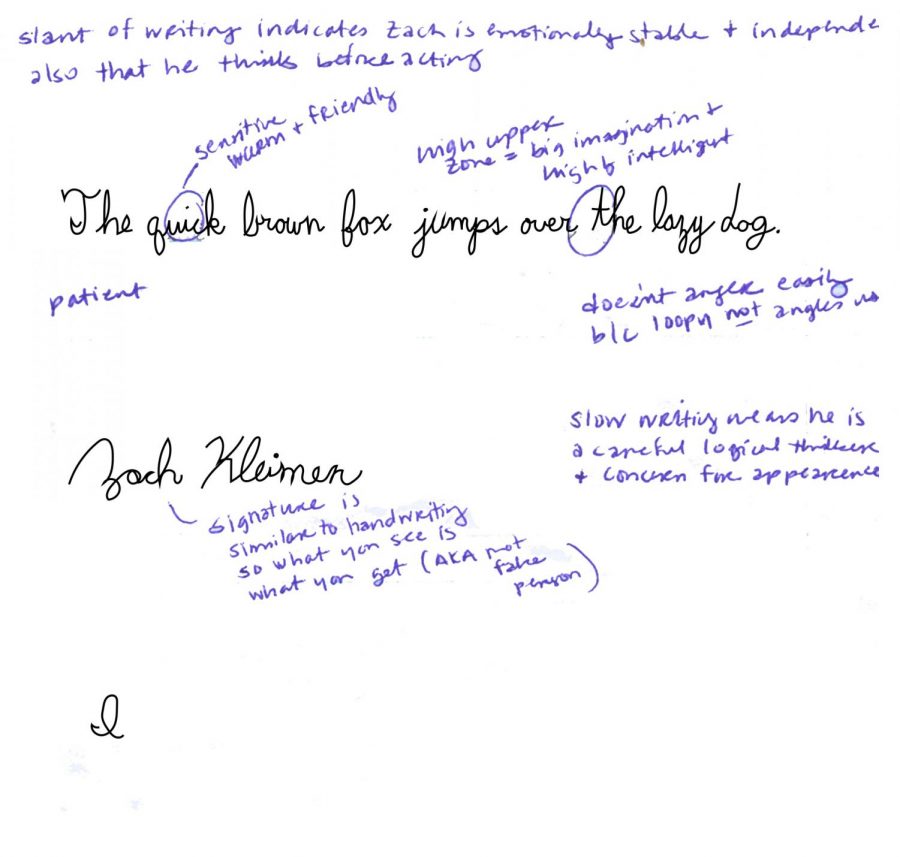 slant of writing indicates Zach is emotionally stable + independe
also that he thinks before acting
sensitive
warm + friendly
high upper
zone = big imagination +
highly intelligent
The quick brown fox jumps over the lazy dog.
patient
doesn't anger easily
b/c loopy not angles
slow writing means he is
a careful logical thinker
+ concern for appearence
Zach Kleimen
signature is
similar to handwriting
so what you see is
what you get (AKA not
fake
person)
I